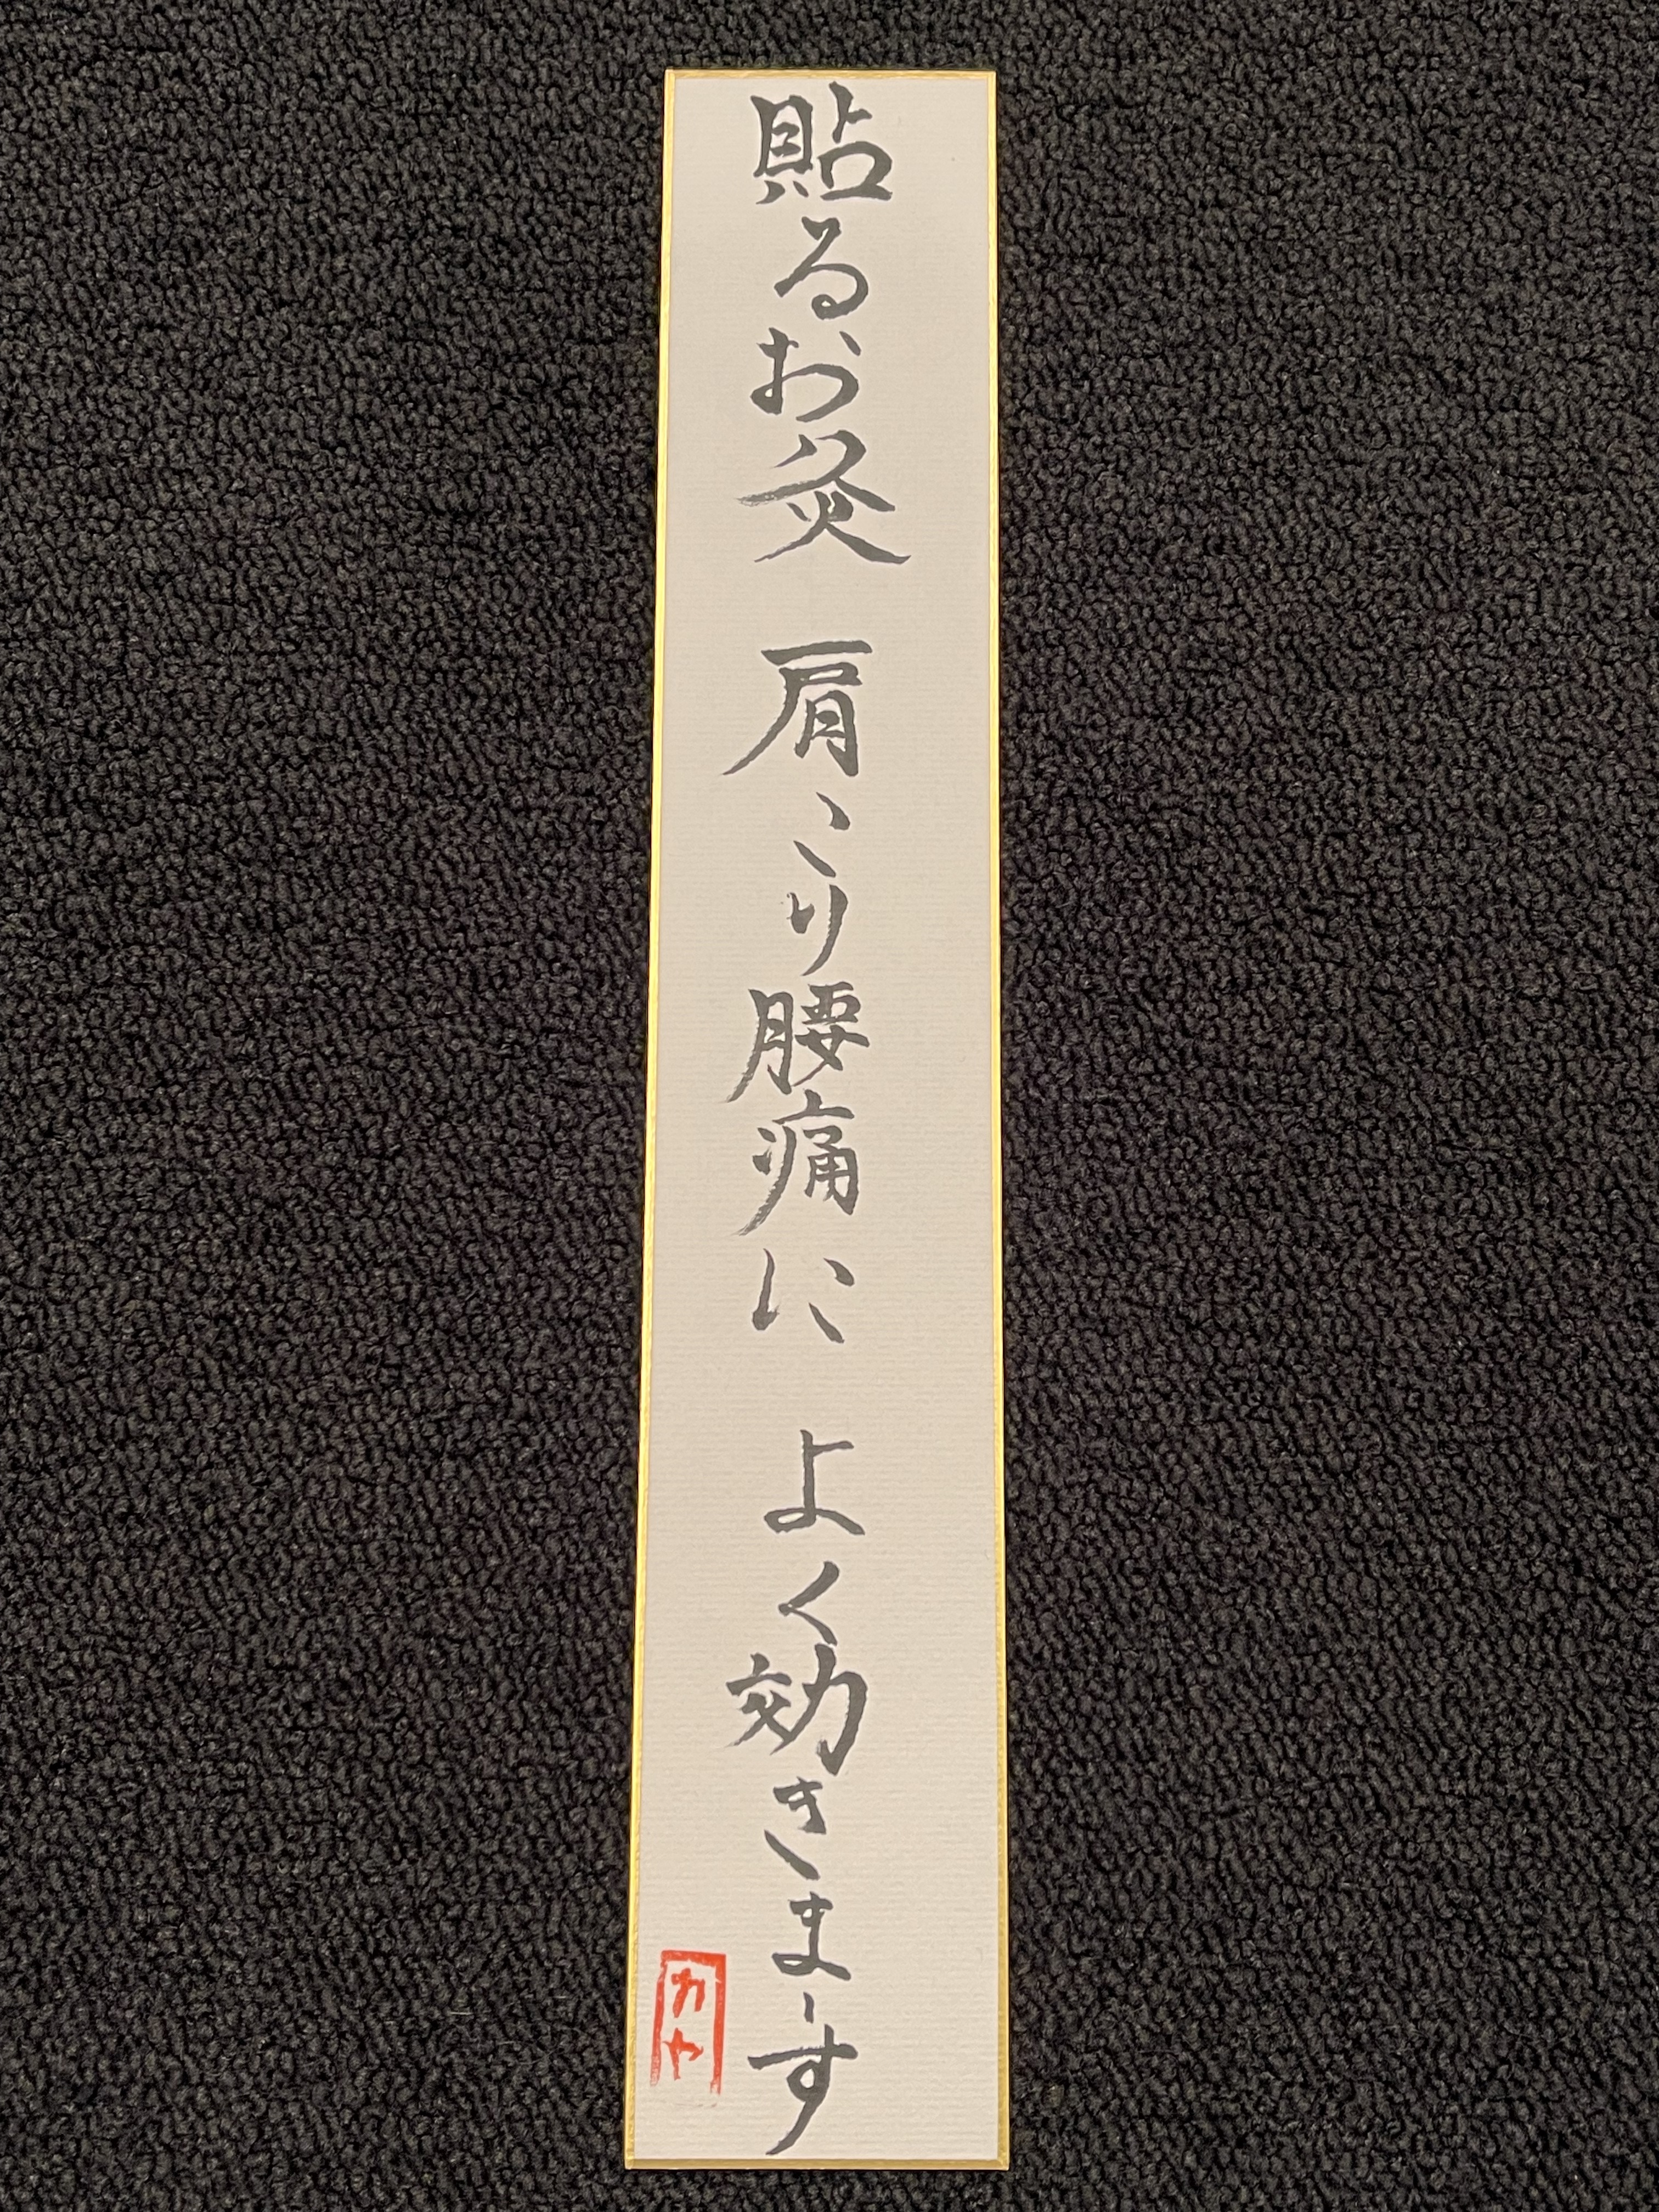 貼るお灸 肩こり腰痛に よく効きまーす
カヤ